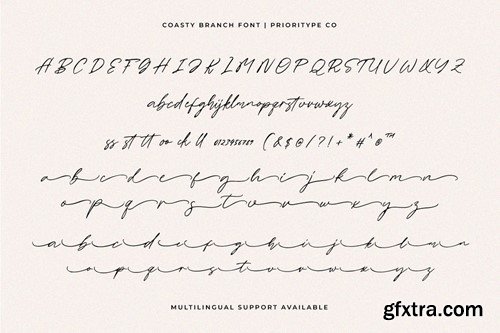 COASTY BRANCH FONT | PRIORITYPE CO
A B C D E F G H I J K L M N O P Q R S T U V W X Y Z
abcdefghijklmnopqrstuvwxyz
ss st tt oo ch ll 0123456789 ( & $ @ / ? ! + * # ^ ® ™
a b c d e f g h i j k l m n
o p q r s t u v w x y z
a b c d e f g h i j k l m n
o p q r s t u v w x y z
MULTILINGUAL SUPPORT AVAILABLE
gfxtra.com